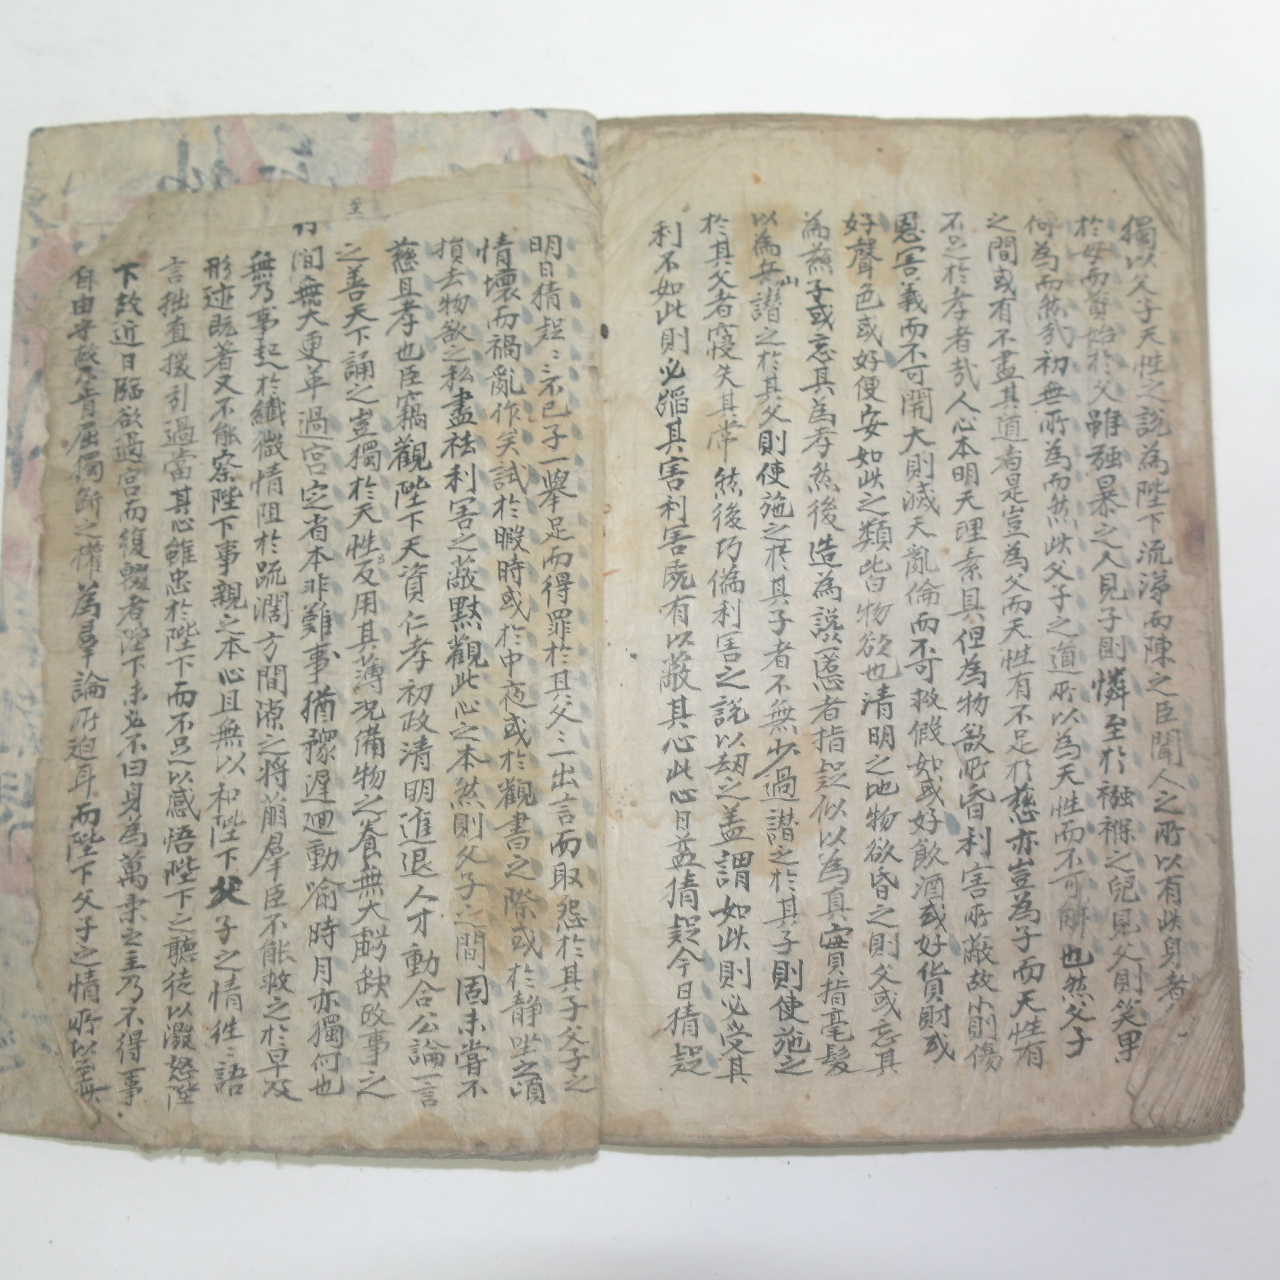 獨以父子天性之說為陛下流涕而陳之臣聞人之所以有此身者
於母而資始於父雖強暴之人見子則憐至於襁褓之兒見父則笑果
何為而然哉初無所為而然此父子之道所以為天性而不可解也然父子
之間或有不盡其道者是豈為父而天性有不足於慈亦豈為子而天性有
不足於孝者哉人心本明天理素具但為物欲所昏利害所蔽故小則傷
恩害義而不可開大則滅天亂倫而不可救假如或好飲酒或好貨財或
好聲色或好便安如此之類皆物欲也清明之地物欲昏之則父或忘其
為慈子或忘其為孝然後造為讒慝者指疑似以為真實指毫髮
以為丘山譖之於其父則使施之於其子者不無少過譖之於其子則使施之
於其父者寖失其常然後巧偽利害之說以劫之盖謂如此則必受其
利不如此則必蹈其害利害既有以蔽其心此心日益猜疑今日猜疑
明日猜疑〻〻不已子一舉足而得罪於其父〻一出言而取怨於其子父子之
情壞而禍亂作矣試於暇時或於中夜或於觀書之際或於静坐之頃
損去物欲之私盡祛利害之蔽默觀此心之本然則父子之間固未嘗不
慈且孝也臣竊觀陛下天資仁孝初政清明進退人才動合公論一言
之善天下誦之豈獨於天性反用其薄况備物之養無大虧缺政事之
行間無大更革過宮定省本非難事猶豫遲迴動喻時月亦獨何也
無乃事起於纖微情阻於疏濶方間源之將萠羣臣不能救之於早及
形迹既著又不能察陛下事親之本心且無以和陛下父子之情徃〻語
言拙直援引過當其心雖忠於陛下而不足以感悟陛下之聽徒以激怒陛
下故近日臨欲過宮而復輟者陛下未必不曰身為萬乘之主乃不得事
自由安肯屈獨断之權為羣論所迫耳而陛下父子之情所以
至